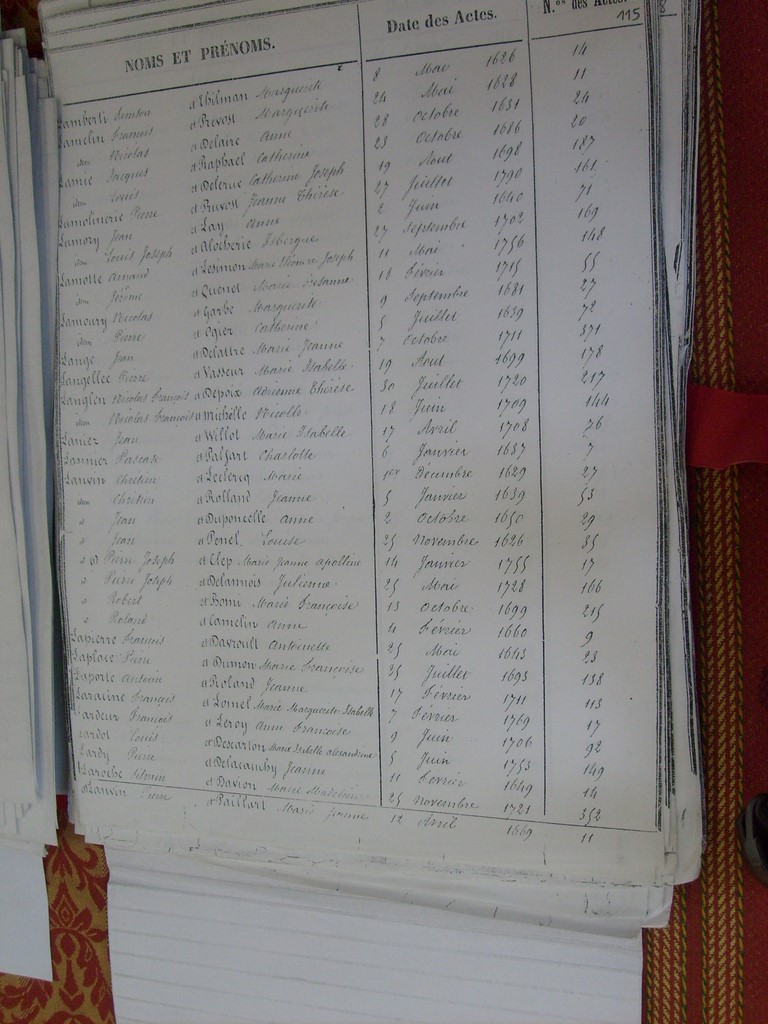 NOMS ET PRÉNOMS. Date des Actes. N.os des Actes.
115
Lamberti Simson et Thilman Marguerite 8 Mai 1626 14
Lamelin François et Prevost Marguerite 24 Mai 1628 11
idem Nicolas et Delaire Anne 28 Octobre 1631 24
Lamie Jacques et Raphael Catherine 23 Octobre 1686 20
idem Louis et Delerue Catherine Joseph 19 Aout 1698 187
Lamolinerie Pierre et Pruvost Jeanne Thérèse 27 Juillet 1790 161
Lamory Jean et Lay Anne 2 Juin 1640 71
idem Louis Joseph et Alocherie Isbergue 27 Septembre 1702 169
Lamotte Arnaud et Lesimon Marie Joseph 11 Mai 1756 148
idem Jérôme et Quenet Marie Susanne 18 Février 1715 55
Lamoury Nicolas et Garbe Marguerite 9 Septembre 1681 27
idem Pierre et Ogier Catherine 5 Juillet 1639 72
Lange Jean et Delattre Marie Jeanne 7 Octobre 1711 371
Langellee Pierre et Vasseur Marie Isabelle 19 Aout 1699 178
Langlen Nicolas François et Depoix Adrienne Thérèse 30 Juillet 1720 217
idem Nicolas François et Michelle Nicolle 18 Juin 1709 144
Lanier Jean et Willot Marie Isabelle 17 Avril 1708 76
Lannier Pascase et Palfart Charlotte 6 Janvier 1637 7
Lanvin Chretien et Leclercq Marie 1er Décembre 1629 27
idem Chretien et Rolland Jeanne 5 Janvier 1639 53
d Jean et Duponcelle Anne 2 Octobre 1650 29
d Jean et Penel Louise 25 Novembre 1626 35
d Pierre Joseph et Clep Marie Jeanne Apolline 14 Janvier 1755 17
d Pierre Joseph et Delannois Julienne 25 Mai 1728 166
d Robert et Bomi Marie Françoise 13 Octobre 1699 215
d Roland et Camelin Anne 4 Février 1660 9
Lapierre François et Davroult Antoinette 25 Mai 1643 23
Laplace Pierre et Dumon Marie Françoise 25 Juillet 1693 138
Laporte Antoine et Roland Jeanne 17 Février 1711 113
Laracine François et Loinel Marie Marguerite Isabelle 7 Février 1769 17
Lardeur François et Leroy Anne Françoise 9 Juin 1706 92
Lardot Louis et Descarton Marie Isabelle Alexandrine 5 Juin 1753 149
Lardy Pierre et Delacauchy Jeanne 11 Février 1649 14
Laroche et Davion Marie Madeleine 25 Novembre 1721 352
Lanvin Pierre et Paillart Marie Jeanne 12 Avril 1669 11